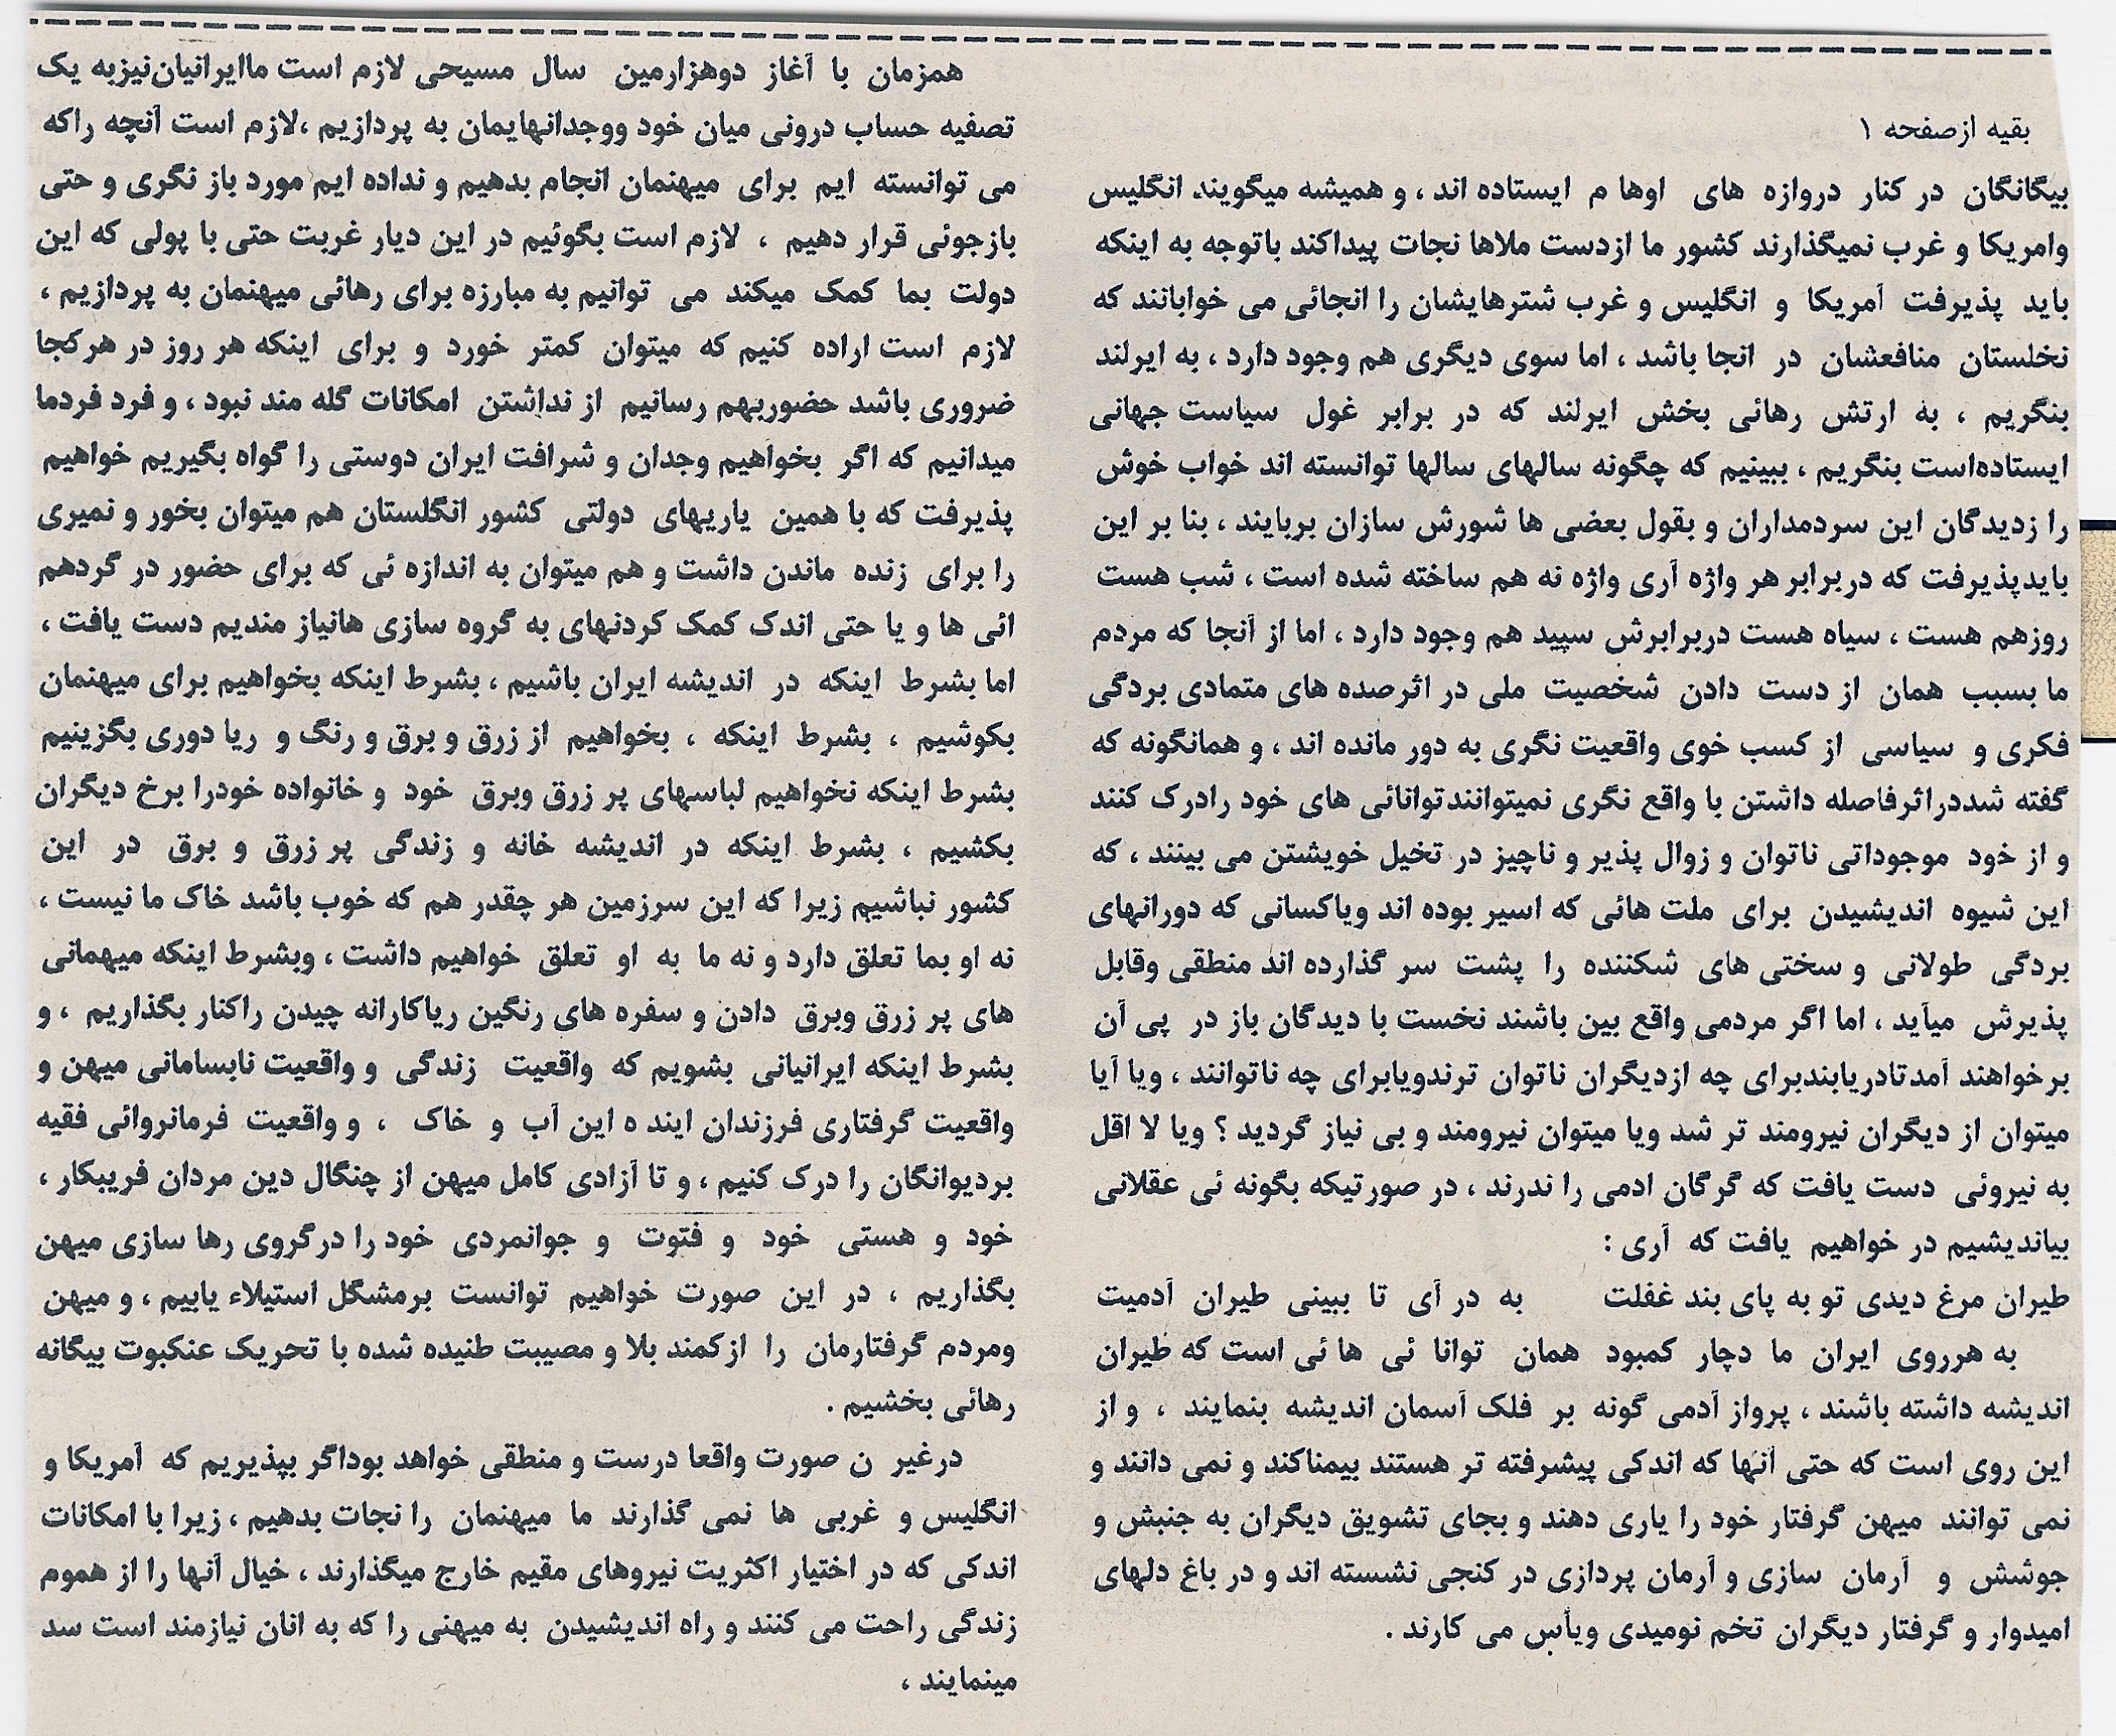 بقیه ازصفحه ۱
بیگانگان در کنار دروازه های اوها م ایستاده اند ، و همیشه میگویند انگلیس
وامریکا و غرب نمیگذارند کشور ما ازدست ملاها نجات پیداکند باتوجه به اینکه
باید پذیرفت آمریکا و انگلیس و غرب شترهایشان را انجائی می خوابانند که
نخلستان منافعشان در انجا باشد ، اما سوی دیگری هم وجود دارد ، به ایرلند
بنگریم ، به ارتش رهائی بخش ایرلند که در برابر غول سیاست جهانی
ایستاده‌است بنگریم ، ببینیم که چگونه سالهای سالها توانسته اند خواب خوش
را زدیدگان این سردمداران و بقول بعضی ها شورش سازان بربایند ، بنا بر این
بایدپذیرفت که دربرابر هر واژه آری واژه نه هم ساخته شده است ، شب هست
روزهم هست ، سیاه هست دربرابرش سپید هم وجود دارد ، اما از آنجا که مردم
ما بسبب همان از دست دادن شخصیت ملی در اثرصده های متمادی بردگی
فکری و سیاسی از کسب خوی واقعیت نگری به دور مانده اند ، و همانگونه که
گفته شددراثرفاصله داشتن با واقع نگری نمیتوانندتوانائی های خود رادرک کنند
و از خود موجوداتی ناتوان و زوال پذیر و ناچیز در تخیل خویشتن می بینند ، که
این شیوه اندیشیدن برای ملت هائی که اسیر بوده اند ویاکسانی که دورانهای
بردگی طولانی و سختی های شکننده را پشت سر گذارده اند منطقی وقابل
پذیرش میآید ، اما اگر مردمی واقع بین باشند نخست با دیدگان باز در پی آن
برخواهند آمدتادریابندبرای چه ازدیگران ناتوان ترندویابرای چه ناتوانند ، ویا آیا
میتوان از دیگران نیرومند تر شد ویا میتوان نیرومند و بی نیاز گردید ؟ ویا لا اقل
به نیروئی دست یافت که گرگان ادمی را ندرند ، در صورتیکه بگونه ئی عقلانی
بیاندیشیم در خواهیم یافت که آری :
طیران مرغ دیدی تو به پای بند غفلت به در آی تا ببینی طیران آدمیت
به هرروی ایران ما دچار کمبود همان توانا ئی ها ئی است که طیران
اندیشه داشته باشند ، پرواز آدمی گونه بر فلک آسمان اندیشه بنمایند ، و از
این روی است که حتی آنها که اندکی پیشرفته تر هستند بیمناکند و نمی دانند و
نمی توانند میهن گرفتار خود را یاری دهند و بجای تشویق دیگران به جنبش و
جوشش و آرمان سازی و آرمان پردازی در کنجی نشسته اند و در باغ دلهای
امیدوار و گرفتار دیگران تخم نومیدی ویأس می کارند .
همزمان با آغاز دوهزارمین سال مسیحی لازم است ماایرانیان‌نیزبه یک
تصفیه حساب درونی میان خود ووجدانهایمان به پردازیم ،لازم است آنچه راکه
می توانسته ایم برای میهنمان انجام بدهیم و نداده ایم مورد باز نگری و حتی
بازجوئی قرار دهیم ، لازم است بگوئیم در این دیار غربت حتی با پولی که این
دولت بما کمک میکند می توانیم به مبارزه برای رهائی میهنمان به پردازیم ،
لازم است اراده کنیم که میتوان کمتر خورد و برای اینکه هر روز در هرکجا
ضروری باشد حضوربهم رسانیم از نداشتن امکانات گله مند نبود ، و فرد فردما
میدانیم که اگر بخواهیم وجدان و شرافت ایران دوستی را گواه بگیریم خواهیم
پذیرفت که با همین یاریهای دولتی کشور انگلستان هم میتوان بخور و نمیری
را برای زنده ماندن داشت و هم میتوان به اندازه ئی که برای حضور در گردهم
ائی ها و یا حتی اندک کمک کردنهای به گروه سازی هانیاز مندیم دست یافت ،
اما بشرط اینکه در اندیشه ایران باشیم ، بشرط اینکه بخواهیم برای میهنمان
بکوشیم ، بشرط اینکه ، بخواهیم از زرق و برق و رنگ و ریا دوری بگزینیم
بشرط اینکه نخواهیم لباسهای پر زرق وبرق خود و خانواده خودرا برخ دیگران
بکشیم ، بشرط اینکه در اندیشه خانه و زندگی پر زرق و برق در این
کشور نباشیم زیرا که این سرزمین هر چقدر هم که خوب باشد خاک ما نیست ،
نه او بما تعلق دارد و نه ما به او تعلق خواهیم داشت ، وبشرط اینکه میهمانی
های پر زرق وبرق دادن و سفره های رنگین ریاکارانه چیدن راکنار بگذاریم ، و
بشرط اینکه ایرانیانی بشویم که واقعیت زندگی و واقعیت نابسامانی میهن و
واقعیت گرفتاری فرزندان ایند ه این آب و خاک ، و واقعیت فرمانروائی فقیه
بردیوانگان را درک کنیم ، و تا آزادی کامل میهن از چنگال دین مردان فریبکار ،
خود و هستی خود و فتوت و جوانمردی خود را درگروی رها سازی میهن
بگذاریم ، در این صورت خواهیم توانست برمشگل استیلاء یابیم ، و میهن
ومردم گرفتارمان را ازکمند بلا و مصیبت طنیده شده با تحریک عنکبوت بیگانه
رهائی بخشیم .
درغیر ن صورت واقعا درست و منطقی خواهد بوداگر بپذیریم که آمریکا و
انگلیس و غربی ها نمی گذارند ما میهنمان را نجات بدهیم ، زیرا با امکانات
اندکی که در اختیار اکثریت نیروهای مقیم خارج میگذارند ، خیال آنها را از هموم
زندگی راحت می کنند و راه اندیشیدن به میهنی را که به انان نیازمند است سد
مینمایند ،